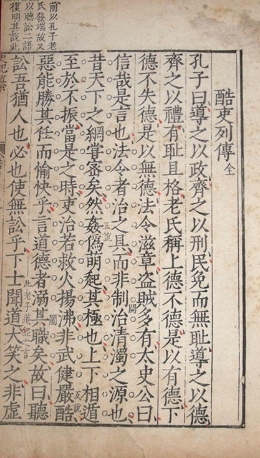 前以孔子老
氏發端故又
以聽訟二語
復明其說此
酷吏列傳 仝
孔子曰導之以政齊之以刑民免而無恥導之以德
齊之以禮有恥且格老氏稱上德不德是以有德下
德不失德是以無德法令滋章盜賊多有太史公曰
信哉是言也法令者治之具而非制治清濁之源也
昔天下之網嘗密矣然姦僞萌起其極也上下相遁
至於不振當是之時吏治若救火揚沸非武健嚴酷
惡能勝其任而愉快乎言道德者溺其職矣故曰聽
訟吾猶人也必也使無訟乎下士聞道大笑之非虛